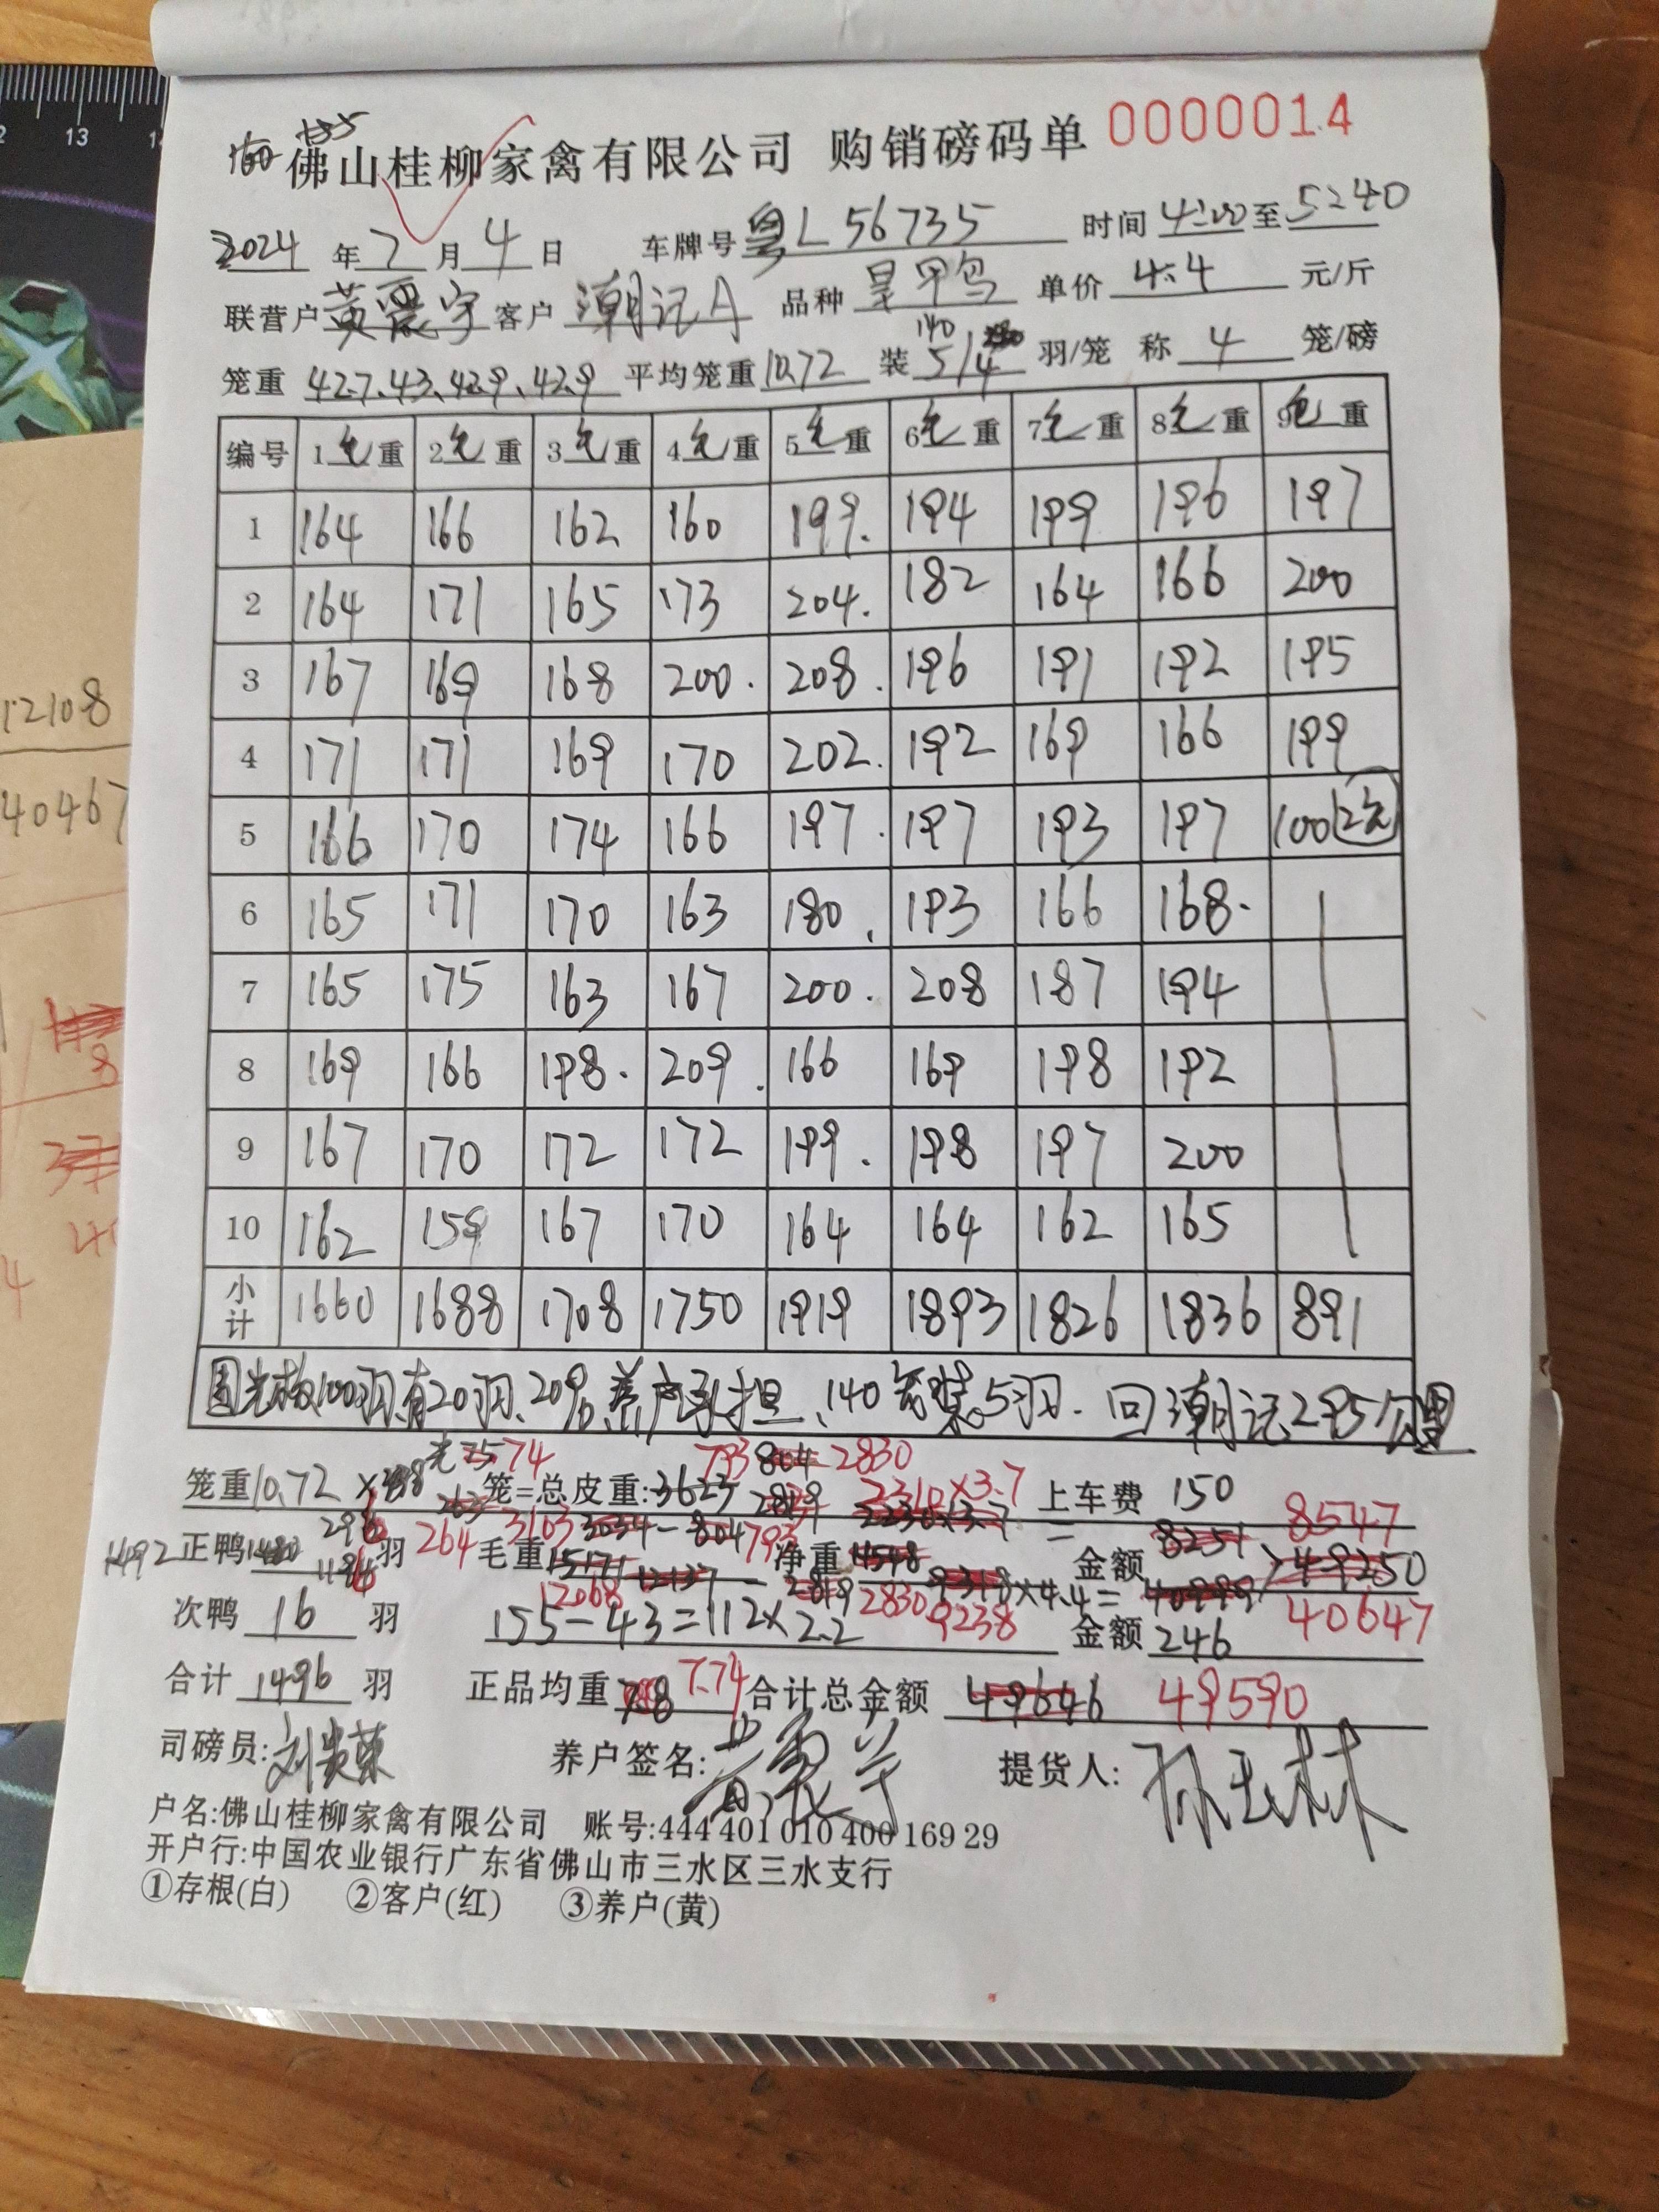 160 155
佛山桂柳家禽有限公司 购销磅码单 0000014
2024 年 7 月 4 日 车牌号 粤L 56735 时间 4:20 至 5:40
联营户 黄震宇 客户 潮记A 品种 单价 4.4 元/斤
笼重 42.7、43、42.9、42.9 平均笼重 10.72 装 140 5/4 羽/笼 称 4 笼/磅
编号 1毛重 2毛重 3毛重 4毛重 5毛重 6毛重 7毛重 8毛重 9毛重
1 164 166 162 160 199. 194 199 196 197
2 164 171 165 173 204. 182 164 166 200
3 167 169 168 200. 208. 196 191 192 195
4 171 171 169 170 202. 192 169 166 199
5 166 170 174 166 197. 197 193 197 100 2笼
6 165 171 170 163 180. 193 166 168.
7 165 175 163 167 200. 208 187 194
8 169 166 198. 209. 166 169 198 192
9 167 170 172 172 199. 198 197 200
10 162 159 167 170 164 164 162 165
小计 1660 1688 1708 1750 1919 1893 1826 1836 891
100羽有20羽、20% 养户承担、140笼装5羽. 回潮记295公里
74 793 804 2830
笼重 10.72 × 笼=总皮重: 3623 2819 2310×3.7 上车费 150
1492 正鸭 羽 264 毛重 3103 793 净重 = 金额 8547
12068 2830 9238 ×4.4= 40647
次鸭 16 羽 155-43=112×2.2 金额 246
合计 1496 羽 正品均重 7.74 合计总金额 49646 49590
司磅员: 刘贵荣 养户签名: 黄震宇 提货人: 孙玉林
户名:佛山桂柳家禽有限公司 账号:444 401 010 400 169 29
开户行:中国农业银行广东省佛山市三水区三水支行
①存根(白) ②客户(红) ③养户(黄)
12108
40467